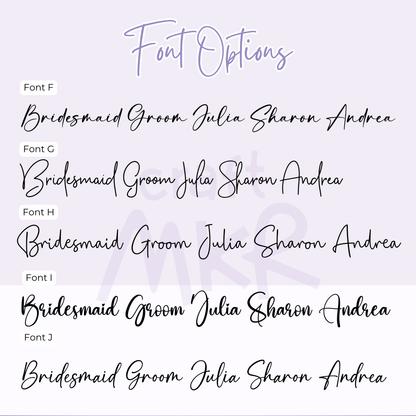 Font Options
Font F
Bridesmaid Groom Julia Sharon Andrea
Font G
Bridesmaid Groom Julia Sharon Andrea
craft
MKR
Font H
Bridesmaid Groom Julia Sharon Andrea
Font I
Bridesmaid Groom Julia Sharon Andrea
Font J
Bridesmaid Groom Julia Sharon Andrea